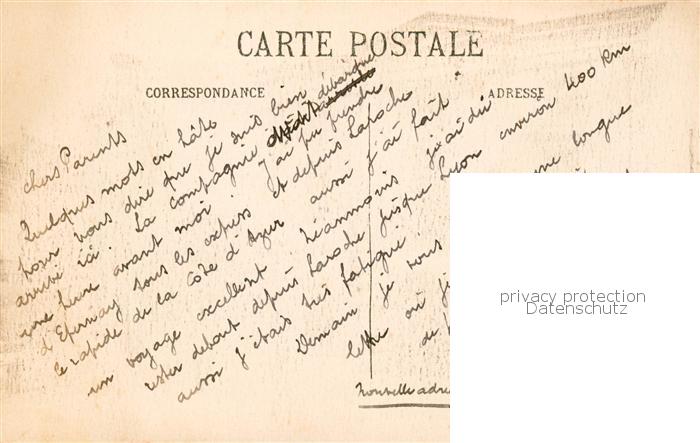 CARTE POSTALE
CORRESPONDANCE
ADRESSE
chers Parents
Quelques mots en hâte
pour vous dire que je suis bien débarqué
arrivé ici. La Compagnie était
une heure avant moi. J'ai pu prendre
d'Epernay tous les express et depuis Laroche
le rapide de la Côte d'Azur aussi j'ai fait
un voyage excellent. Néanmoins j'ai dû
rester debout depuis Laroche jusque Lyon environ 400 km
aussi j'étais très fatigué.
Demain je vous une longue
lettre où j
de
Nouvelle adre
privacy protection
Datenschutz